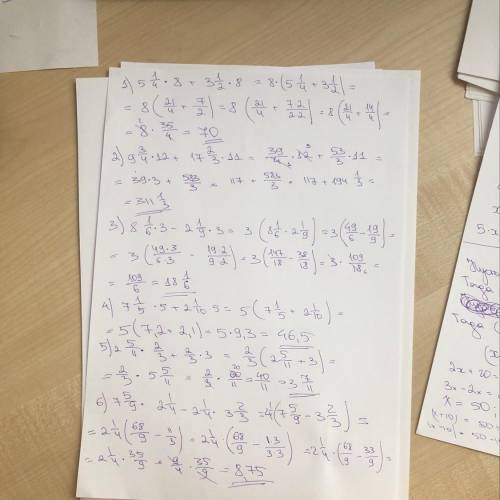 1) 5 1/4 · 8 + 3 1/2 · 8 = 8·(5 1/4 + 3 1/2) =
= 8(21/4 + 7/2) = 8(21/4 + 7·2/2·2) = 8(21/4 + 14/4) =
= 8 · 35/4 = 70
2) 9 3/4 · 12 + 17 2/3 · 11 = 39/4 · 12 + 53/3 · 11 =
= 39·3 + 583/3 = 117 + 583/3 = 117 + 194 1/3 =
= 311 1/3
3) 8 1/6 · 3 - 2 1/9 · 3 = 3(8 1/6 - 2 1/9) = 3(49/6 - 19/9) =
= 3(49·3/6·3 - 19·2/9·2) = 3(147/18 - 38/18) = 3 · 109/18 =
= 109/6 = 18 1/6
4) 7 1/5 · 5 + 2 1/10 · 5 = 5(7 1/5 + 2 1/10) =
= 5(7,2 + 2,1) = 5·9,3 = 46,5
5) 2 5/11 · 2/3 + 2/3 · 3 = 2/3(2 5/11 + 3) =
= 2/3 · 5 5/11 = 2/3 · 60/11 = 40/11 = 3 7/11
6) 7 5/9 · 2 1/4 - 2 1/4 · 3 2/3 = 2 1/4(7 5/9 - 3 2/3) =
= 2 1/4(68/9 - 11/3) = 2 1/4(68/9 - 11·3/3·3) = 2 1/4 · (68/9 - 33/9) =
= 2 1/4 · 35/9 = 9/4 · 35/9 = 8,75
5·x
Тогда
Тогда
2x + 20 =
3x - 2x =
x = 50